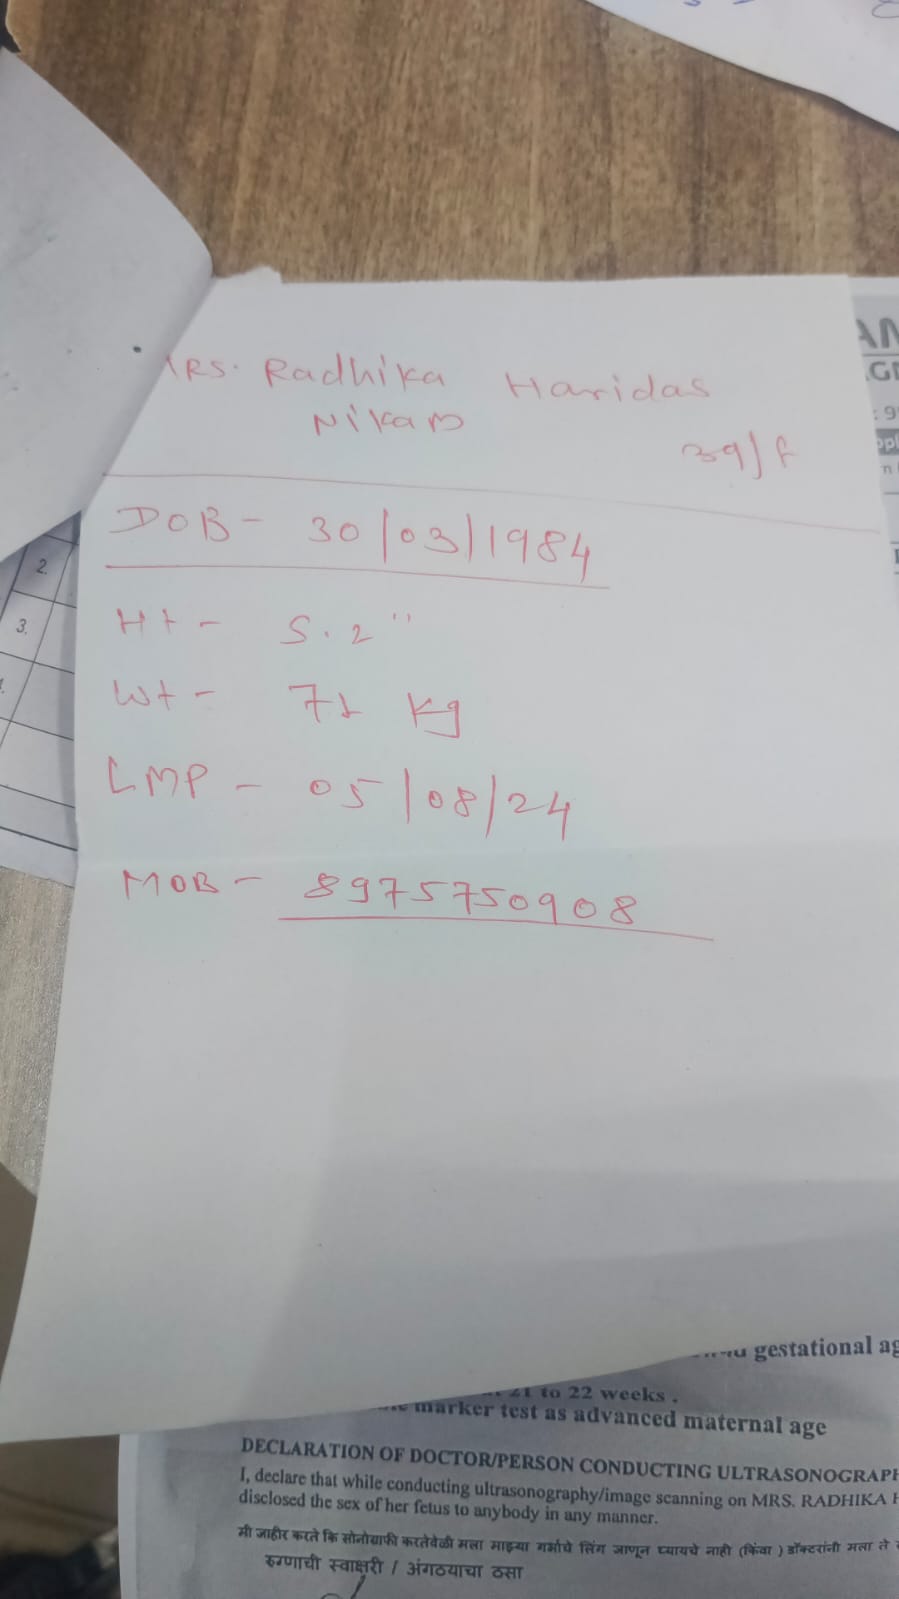 MRS. Radhika Haridas
Nikam
39/F
DOB - 30/03/1984
Ht - 5.2"
Wt - 71 kg
LMP - 05/08/24
MOB - 8975750908
2.
3.
gestational
21 to 22 weeks .
marker test as advanced maternal age
DECLARATION OF DOCTOR/PERSON CONDUCTING
I, declare that while conducting ultrasonography/image scanning on MRS. RADHIKA
disclosed the sex of her fetus to anybody in any manner.
मी जाहीर करते कि सोनोग्राफी करतेवेळी मला माझ्या गर्भाचे लिंग जाणून घ्यायचे नाही (किंवा ) डॉक्टरांनी मला ते
रुग्णाची स्वाक्षरी / अंगठयाचा ठसा